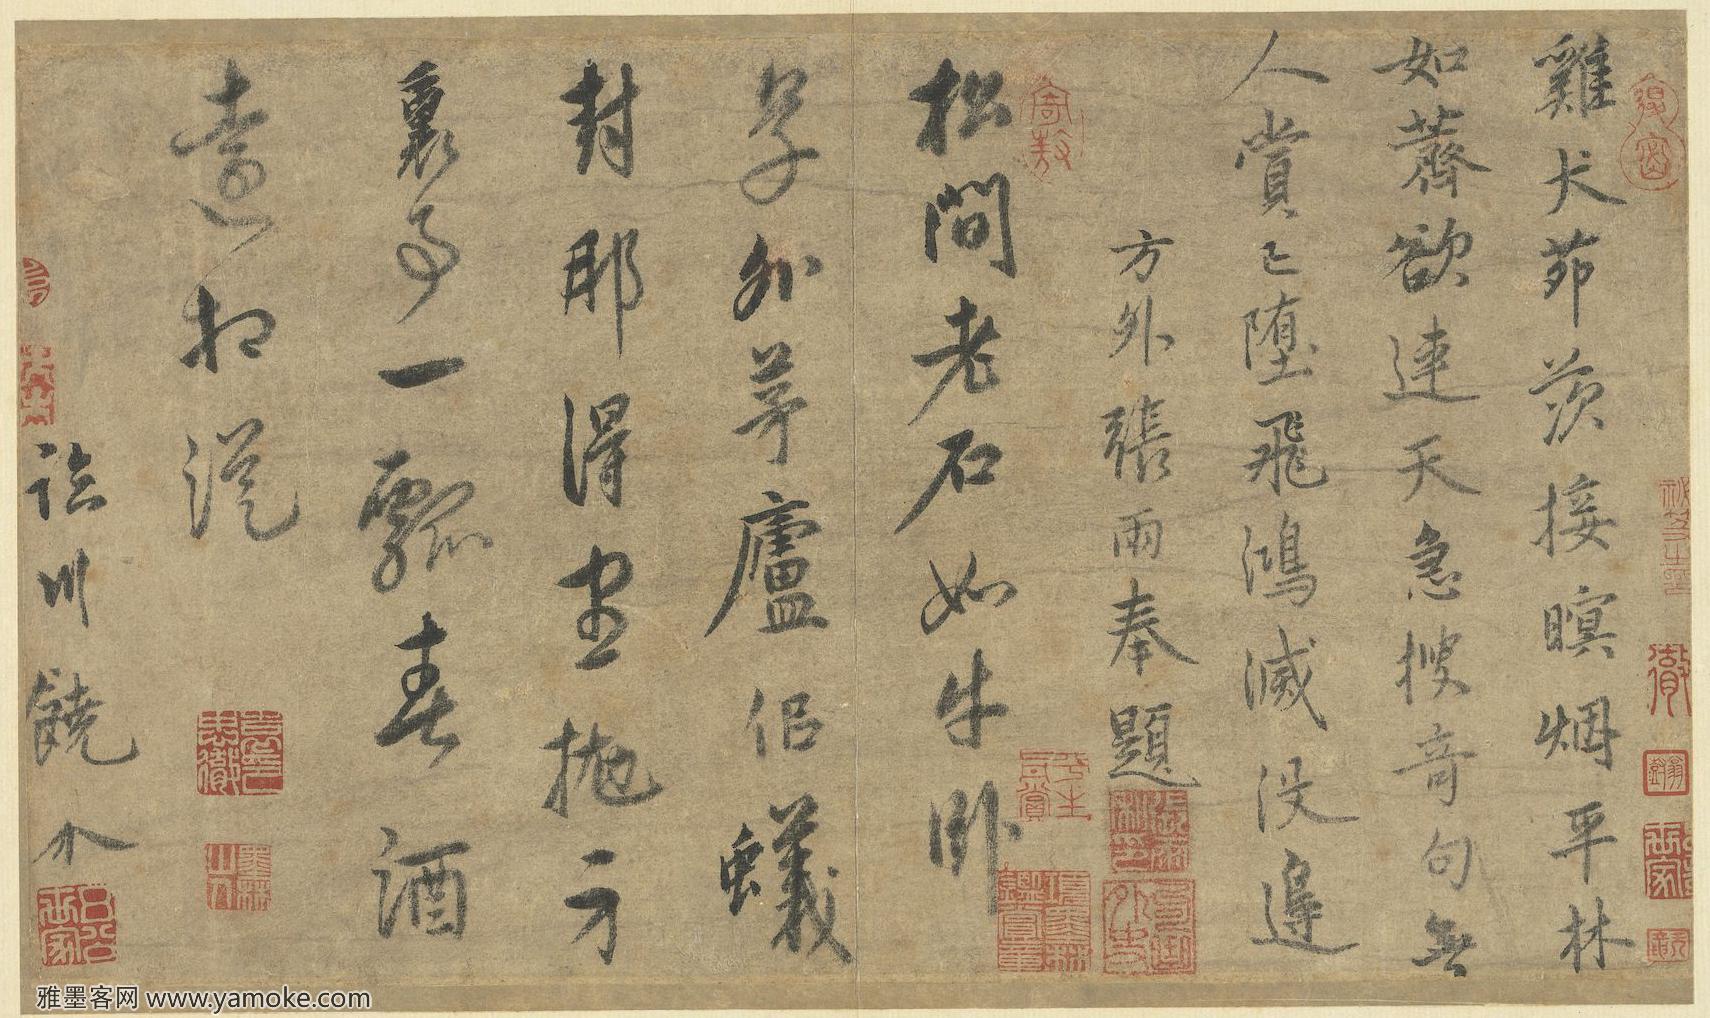 雞犬茆茨接暝烟平林
如薺欲連天急搜奇句無
人賞已墮飛鴻滅没邊
方外張雨奉題
松間老石如牛卧
草外茅廬佀蟻
封那得盡抛身
裏事一瓢春酒
遠相從
臨川饒介
雅墨客网 www.yamoke.com